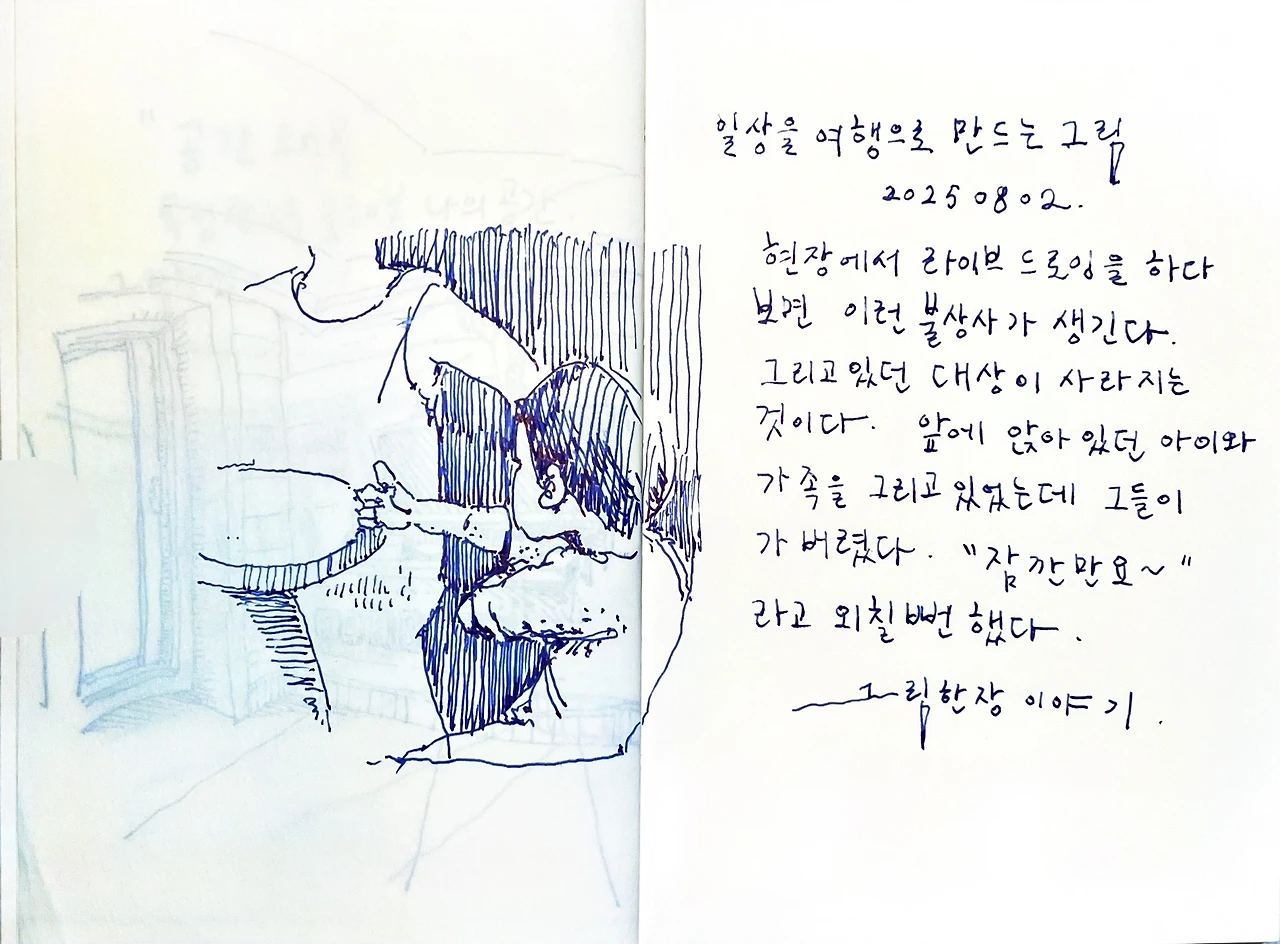 일상을 여행으로 만드는 그림
2025 08 02.
현장에서 라이브 드로잉을 하다
보면 이런 불상사가 생긴다.
그리고있던 대상이 사라지는
것이다. 앞에 앉아 있던 아이와
가족을 그리고 있었는데 그들이
가 버렸다. "잠깐만요~"
라고 외칠뻔 했다.
그림한장 이야기.